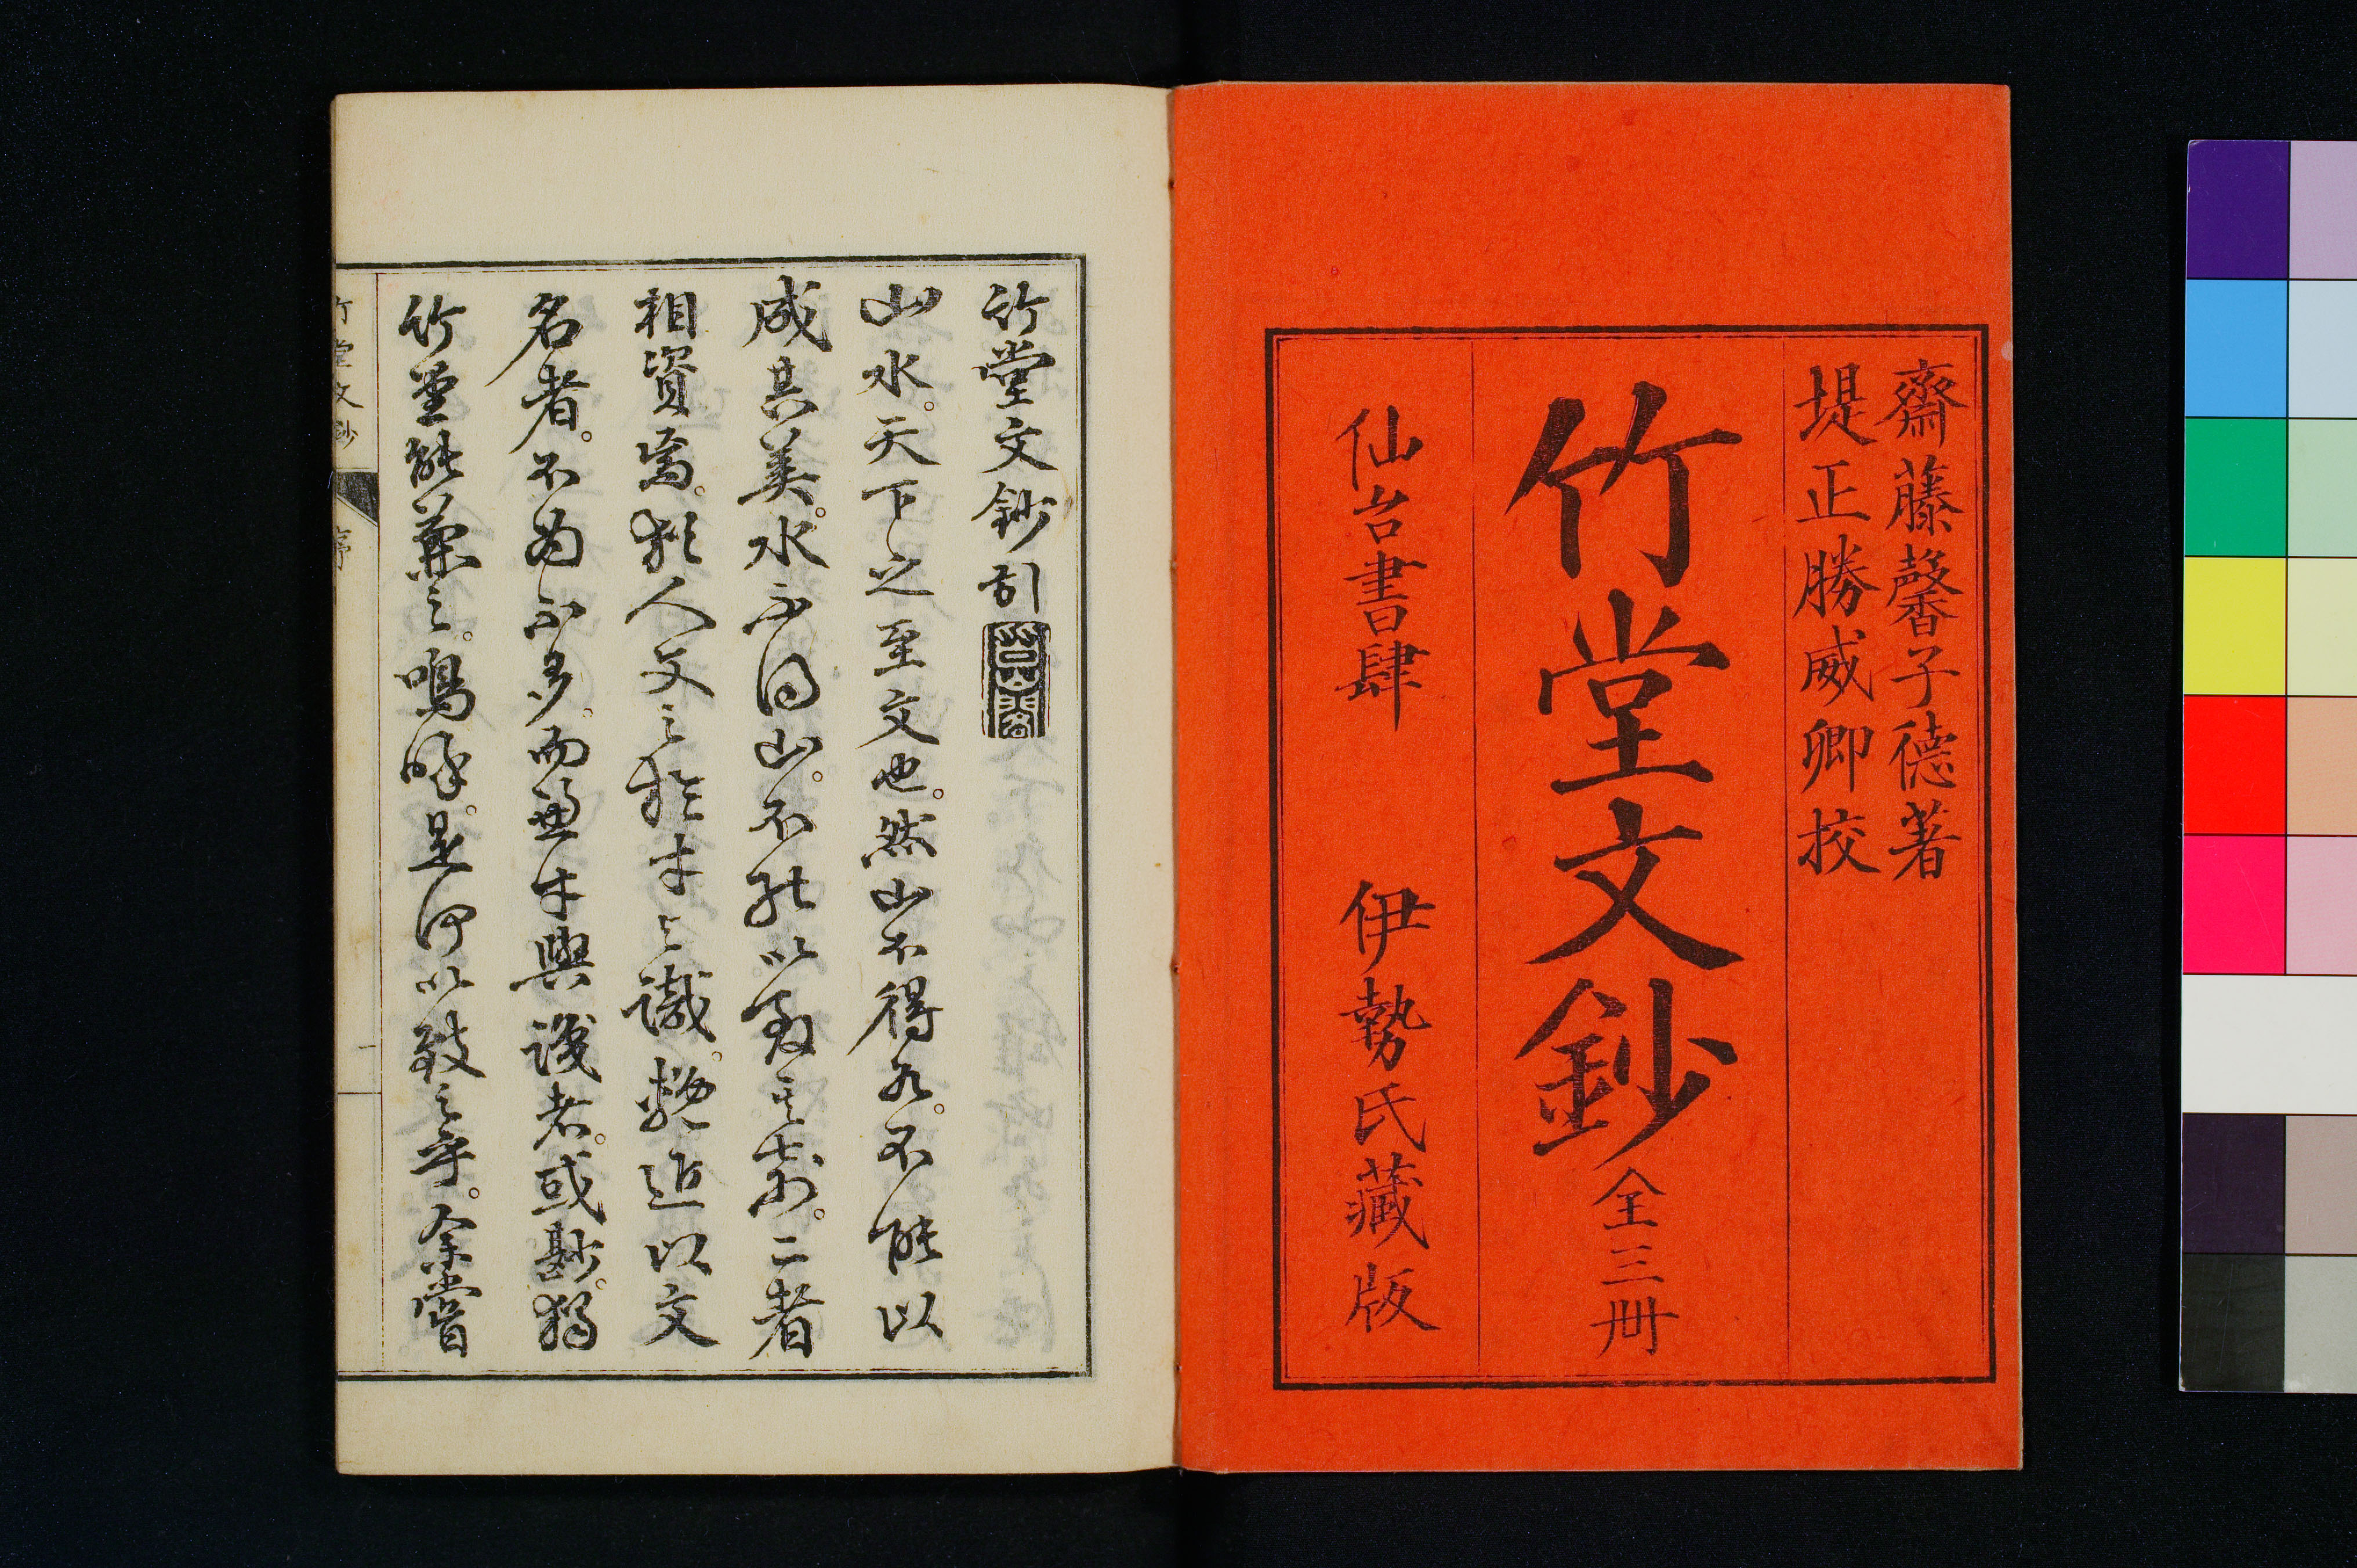 齋藤馨子德著
堤正勝威卿挍
竹堂文鈔全三冊
仙台書肆　伊勢氏藏版
竹堂文鈔引
山水。天下之至文也。然山不得水。不能以
成其美。水不得山。不能以致其奇。二者
相資焉。猶人文之於才之識。輓近以文
名者。不為不多。而兼才與識者。或尠。獨
竹堂能兼之。嗚呼。是何以致之乎。余嘗
竹堂文鈔　序　一